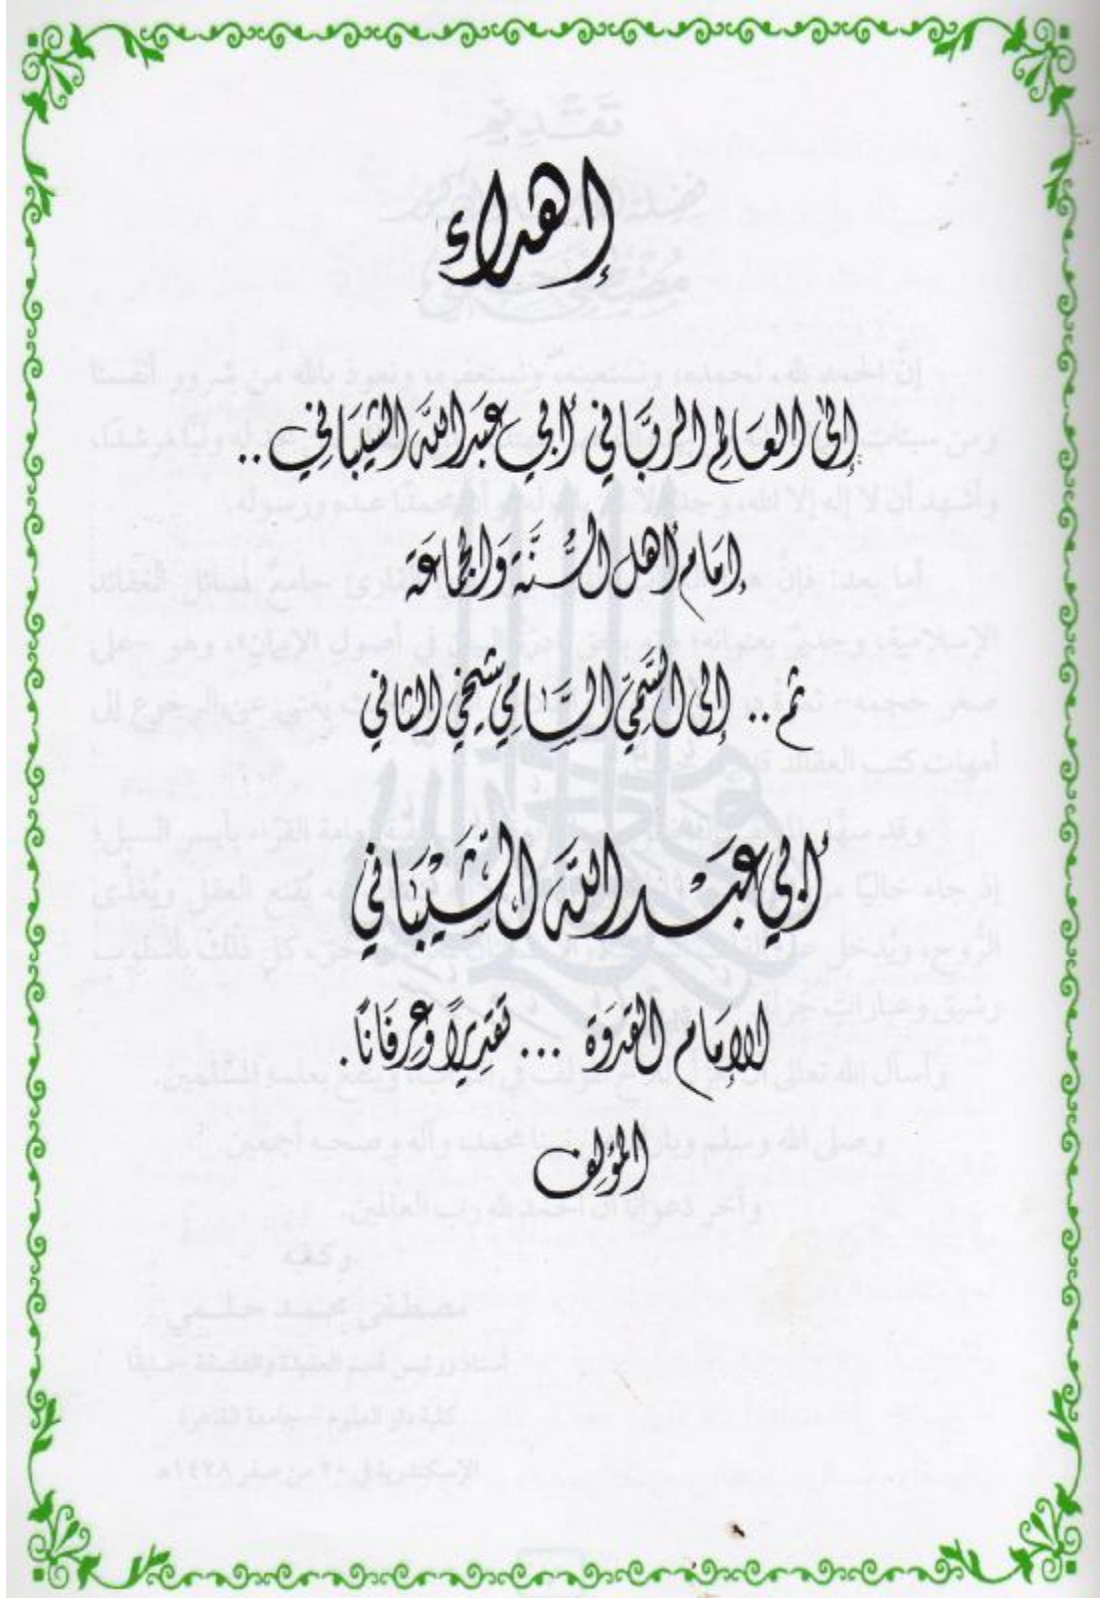 إهداء
إلى العالم الرباني أبي عبد الله الشيباني ..
إمام أهل السنة والجماعة
ثم .. إلى السمي السامي شيخي الثاني
أبي عبد الله الشيباني
الإمام القدوة ... تقديرًا وعرفانًا.
المؤلف